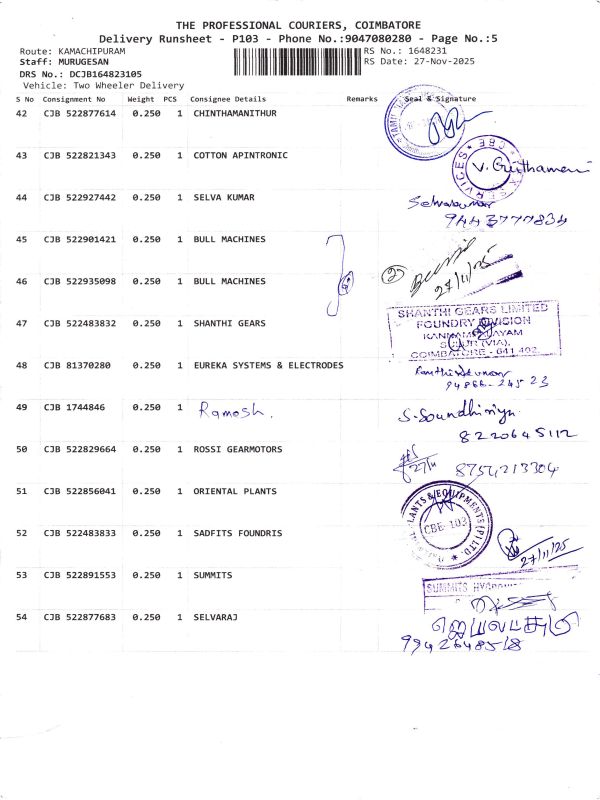 THE PROFESSIONAL COURIERS, COIMBATORE
Delivery Runsheet - P103 - Phone No.:9047080280 - Page No.:5
Route: KAMACHIPURAM RS No.: 1648231
Staff: MURUGESAN RS Date: 27-Nov-2025
DRS No.: DCJB164823105
Vehicle: Two Wheeler Delivery
S No Consignment No Weight PCS Consignee Details Remarks Seal & Signature
42 CJB 522877614 0.250 1 CHINTHAMANITHUR
43 CJB 522821343 0.250 1 COTTON APINTRONIC
CBE
SERVICES
44 CJB 522927442 0.250 1 SELVA KUMAR Selvakumar
9443777834
45 CJB 522901421 0.250 1 BULL MACHINES
46 CJB 522935098 0.250 1 BULL MACHINES 2
27/11/25
47 CJB 522483832 0.250 1 SHANTHI GEARS SHANTHI GEARS LIMITED
FOUNDRY DIVISION
COIMBATORE - 641 402
48 CJB 81370280 0.250 1 EUREKA SYSTEMS & ELECTRODES
94866-245 23
49 CJB 1744846 0.250 1 Ramosh. S. Soundhiriya
8220645112
50 CJB 522829664 0.250 1 ROSSI GEARMOTORS 27/11 8754213304
51 CJB 522856041 0.250 1 ORIENTAL PLANTS PLANTS & EQUIPMENTS (P) LTD.
CBE-103
52 CJB 522483833 0.250 1 SADFITS FOUNDRIS 27/11/25
53 CJB 522891553 0.250 1 SUMMITS SUMMITS
54 CJB 522877683 0.250 1 SELVARAJ
9942648518